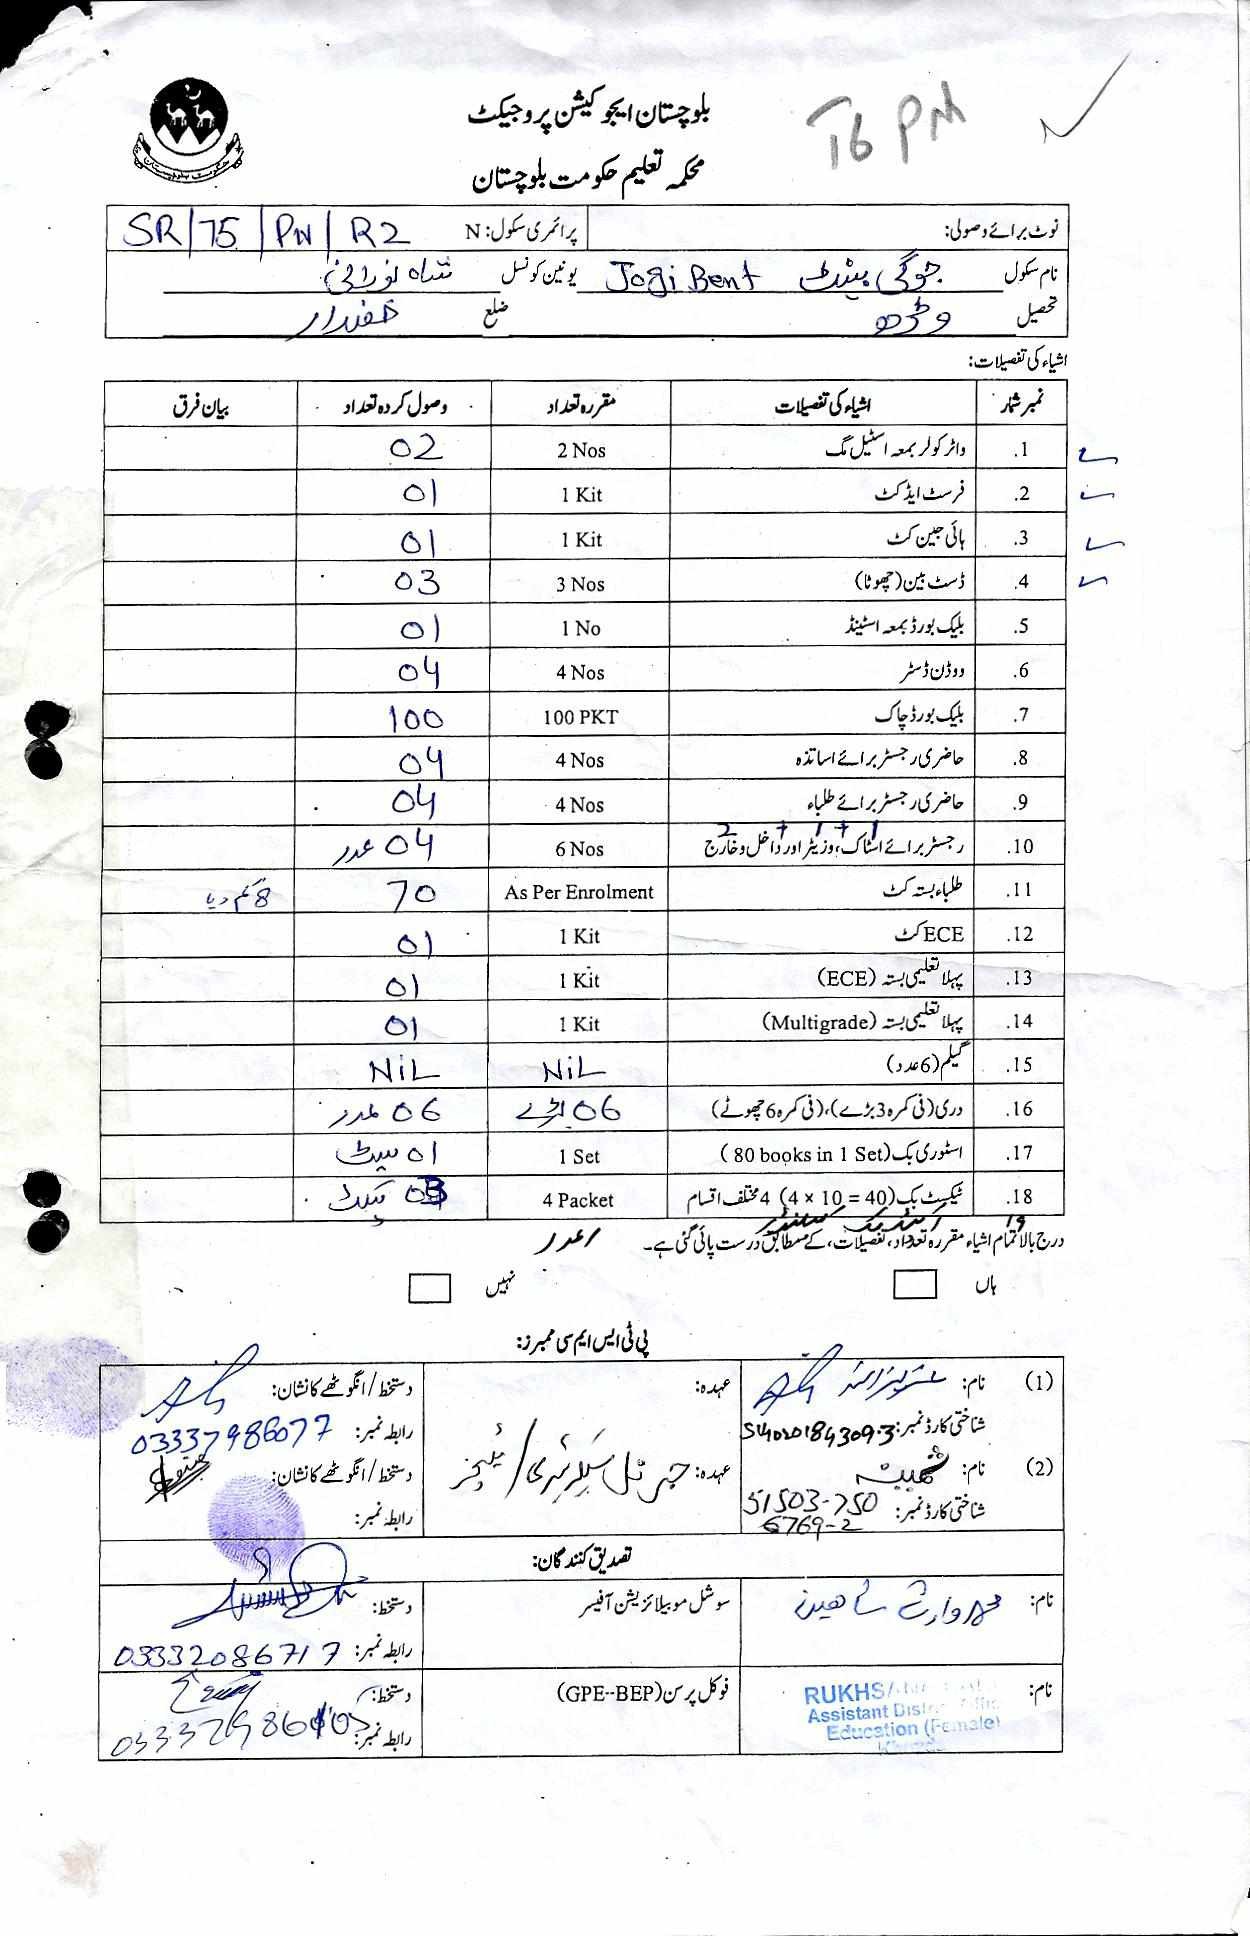 بلوچستان ایجوکیشن پروجیکٹ
محکمہ تعلیم حکومت بلوچستان
T6 PM
حکومت بلوچستان
نوٹ برائے وصولی: پرائمری سکول: N SR/75/PN/R2
نام سکول جوگی بینٹ Jogi Bent یونین کونسل شاہ نورانی
تحصیل وڈھ ضلع خضدار
اشیاء کی تفصیلات:
نمبر شمار اشیاء کی تفصیلات مقررہ تعداد وصول کردہ تعداد بیان فرق
.1 واٹر کولر بمعہ اسٹیل مگ 2 Nos 02
.2 فرسٹ ایڈ کٹ 1 Kit 01
.3 ہائی جین کٹ 1 Kit 01
.4 ڈسٹ بین (چھوٹا) 3 Nos 03
.5 بلیک بورڈ بمعہ اسٹینڈ 1 No 01
.6 ووڈن ڈسٹر 4 Nos 04
.7 بلیک بورڈ چاک 100 PKT 100
.8 حاضری رجسٹر برائے اساتذہ 4 Nos 04
.9 حاضری رجسٹر برائے طلباء 4 Nos 04
1 + 1 + 2
.10 رجسٹر برائے اسٹاک، وزیٹر اور داخل و خارج 6 Nos 04 عدد
.11 طلباء بستہ کٹ As Per Enrolment 70 8 کم دیا
.12 ECE کٹ 1 Kit 01
.13 پہلا تعلیمی بستہ (ECE) 1 Kit 01
.14 پہلا تعلیمی بستہ (Multigrade) 1 Kit 01
.15 گیلم (6 عدد) NiL NiL
.16 دری (فی کمرہ 3 بڑے)، (فی کمرہ 6 چھوٹے) 06 بڑے 06 عدد
.17 اسٹوری بک (80 books in 1 Set) 1 Set 01 سیٹ
.18 ٹیکسٹ بک (4 × 10 = 40) 4 مختلف اقسام 4 Packet 03 پیکٹ
19 1 عدد
درج بالا تمام اشیاء مقررہ تعداد، تفصیلات، کے مطابق درست پائی گئی ہے۔
ہاں نہیں
پی ٹی ایس ایم سی ممبرز:
(1) نام: عزیز اللہ عہدہ: دستخط / انگوٹھے کا نشان:
شناختی کارڈ نمبر: 5140201843093 رابطہ نمبر: 03337986077
(2) نام: عہدہ: جنرل سیکرٹری / ٹیچر دستخط / انگوٹھے کا نشان:
شناختی کارڈ نمبر: 51503-750 رابطہ نمبر:
6769-2
تصدیق کنندگان:
نام: محمد وارث شاھین سوشل موبیلائزیشن آفیسر دستخط:
رابطہ نمبر: 03332086717
نام: RUKHSA فوکل پرسن (GPE--BEP) دستخط:
Assistant
Education (Female)
رابطہ نمبر: